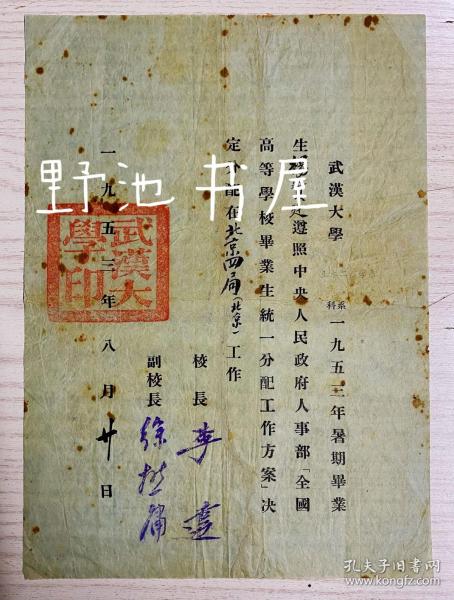 武漢大學 系科 一九五三年暑期畢業
生 遵照中央人民政府人事部「全國
高等學校畢業生統一分配工作方案」決
定分配在北京四局(北京)工作
校長 李達
副校長 徐懋庸
一九五三年八月廿日
武漢大學印
野池 书屋
孔夫子旧书网
www.kongfz.com